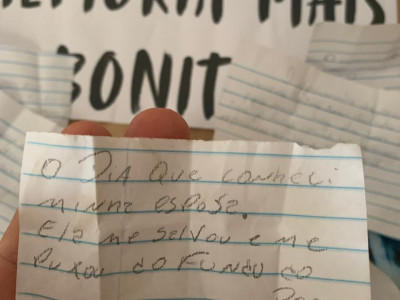 MEMÓRIA MAIS
BONIT
O DIA QUE CONHECi
MINHA ESPOSA.
ELA ME SALVOU E ME
PUXOU DO FUNDO DO